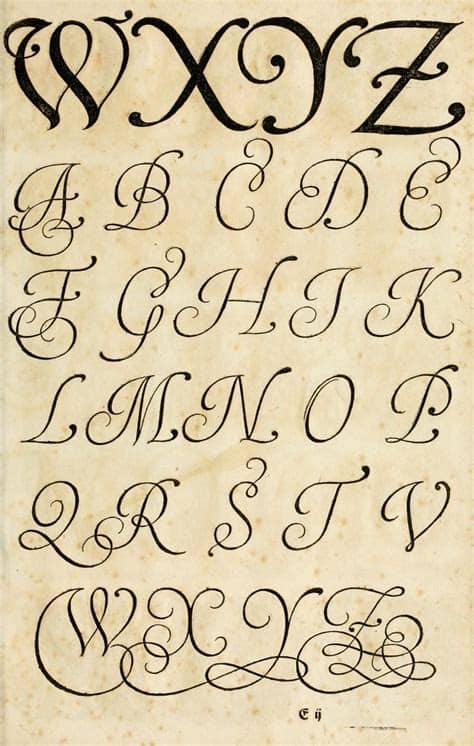 W X Y Z
A B C D E
F G H I K
L M N O P
Q R S T V
W X Y Z
E ij